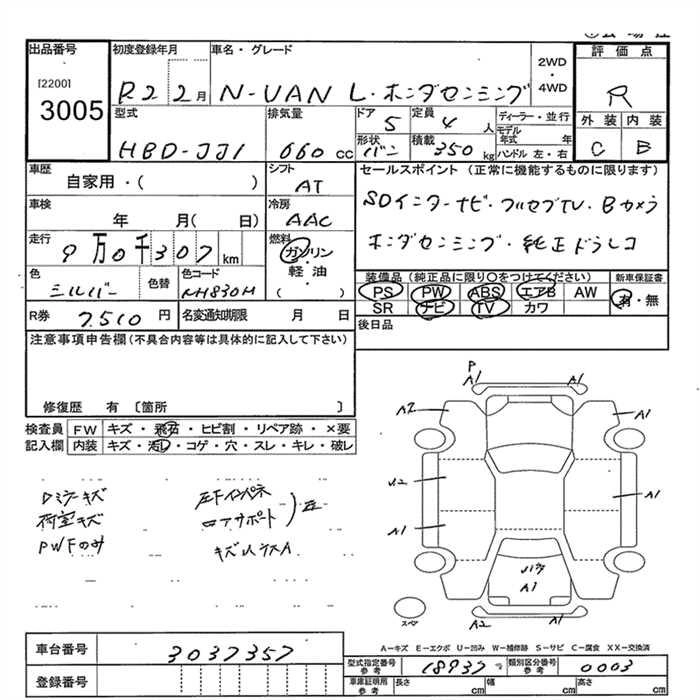 出品番号 初度登録年月 車名・グレード 2WD・4WD 評価点
[2200]
3005
R2 2月 N-VAN L・ホンダセンシング R
型式 排気量 ドア 定員 ディーラー・並行 外装 内装
HBD-JJ1 660cc 5 4人 モデル年式 年
形状 積載 ハンドル 左・右 C B
バン 350kg
車歴 シフト セールスポイント (正常に機能するものに限ります)
自家用・( ) AT
SDインターナビ・フルセグTV・Bカメラ
車検 冷房
年 月( 日) AAC
ホンダセンシング・純正ドラレコ
走行 燃料
9万0千307km ガソリン
軽油
( )
色 色替 色コード
シルバー NH830M
装備品 (純正品に限り○をつけてください) 新車保証書
PS PW ABS エアB AW 有・無
SR ナビ TV カワ
R券 7,510円 名変通知期限 月 日
後日品
注意事項申告欄(不具合内容等は具体的に記入して下さい)
修復歴 有 〔箇所 〕
検査員 FW キズ・飛石・ヒビ割・リペア跡・×要
記入欄 内装 キズ・汚レ・コゲ・穴・スレ・キレ・破レ
Dミラーキズ
荷室キズ
PWFのみ
左Fインパネ
ロアサポート
P
A1 A1
A2 A1
U2 A1
A1
A1
A2 A1
スペア
A-キズ E-エクボ U-凹み W-補修跡 S-サビ C-腐食 XX-交換済
車台番号 3037357
型式指定番号 参考 18937 類別区分番号 参考 0003
登録番号
車庫証明用 参考 長さ cm 幅 cm 高さ cm